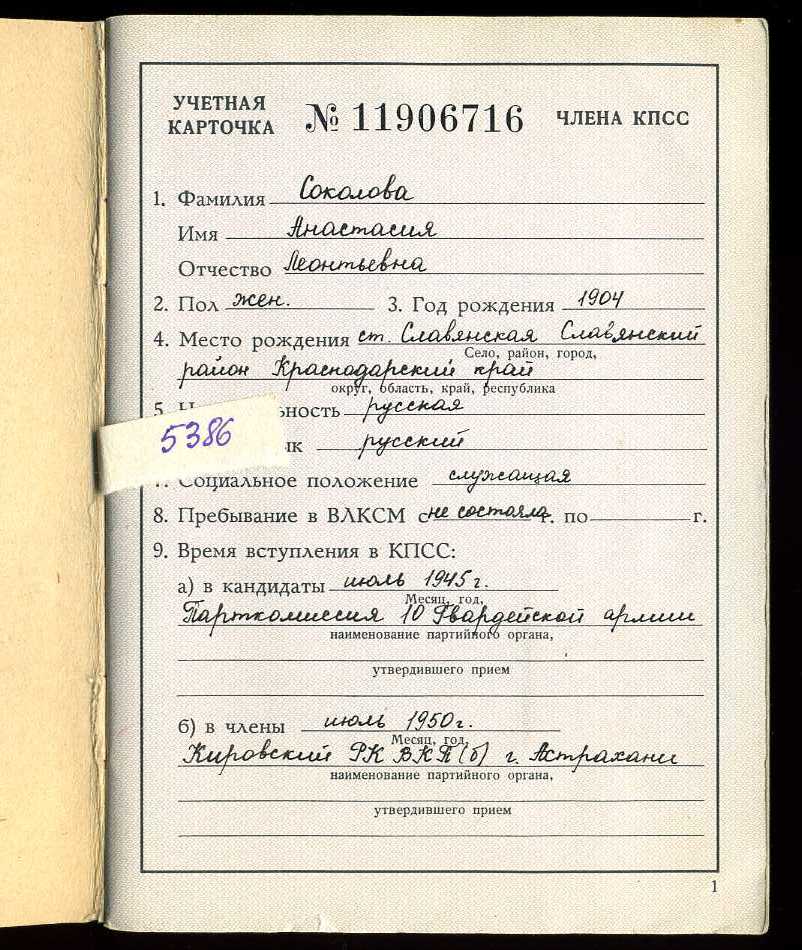 УЧЕТНАЯ
КАРТОЧКА № 11906716 ЧЛЕНА КПСС
1. Фамилия Соколова
Имя Анастасия
Отчество Леонтьевна
2. Пол жен. 3. Год рождения 1904
4. Место рождения ст. Славянская Славянский
Село, район, город,
район Краснодарский край
округ, область, край, республика
5. Н ьность русская
5386
ык русский
Социальное положение служащая
8. Пребывание в ВЛКСМ с не состояла г. по г.
9. Время вступления в КПСС:
а) в кандидаты июль 1945 г.
Месяц, год,
Парткомиссия 10 Гвардейской армии
наименование партийного органа,
утвердившего прием
б) в члены июль 1950 г.
Месяц, год,
Кировский РК ВКП(б) г. Астрахани
наименование партийного органа,
утвердившего прием
1